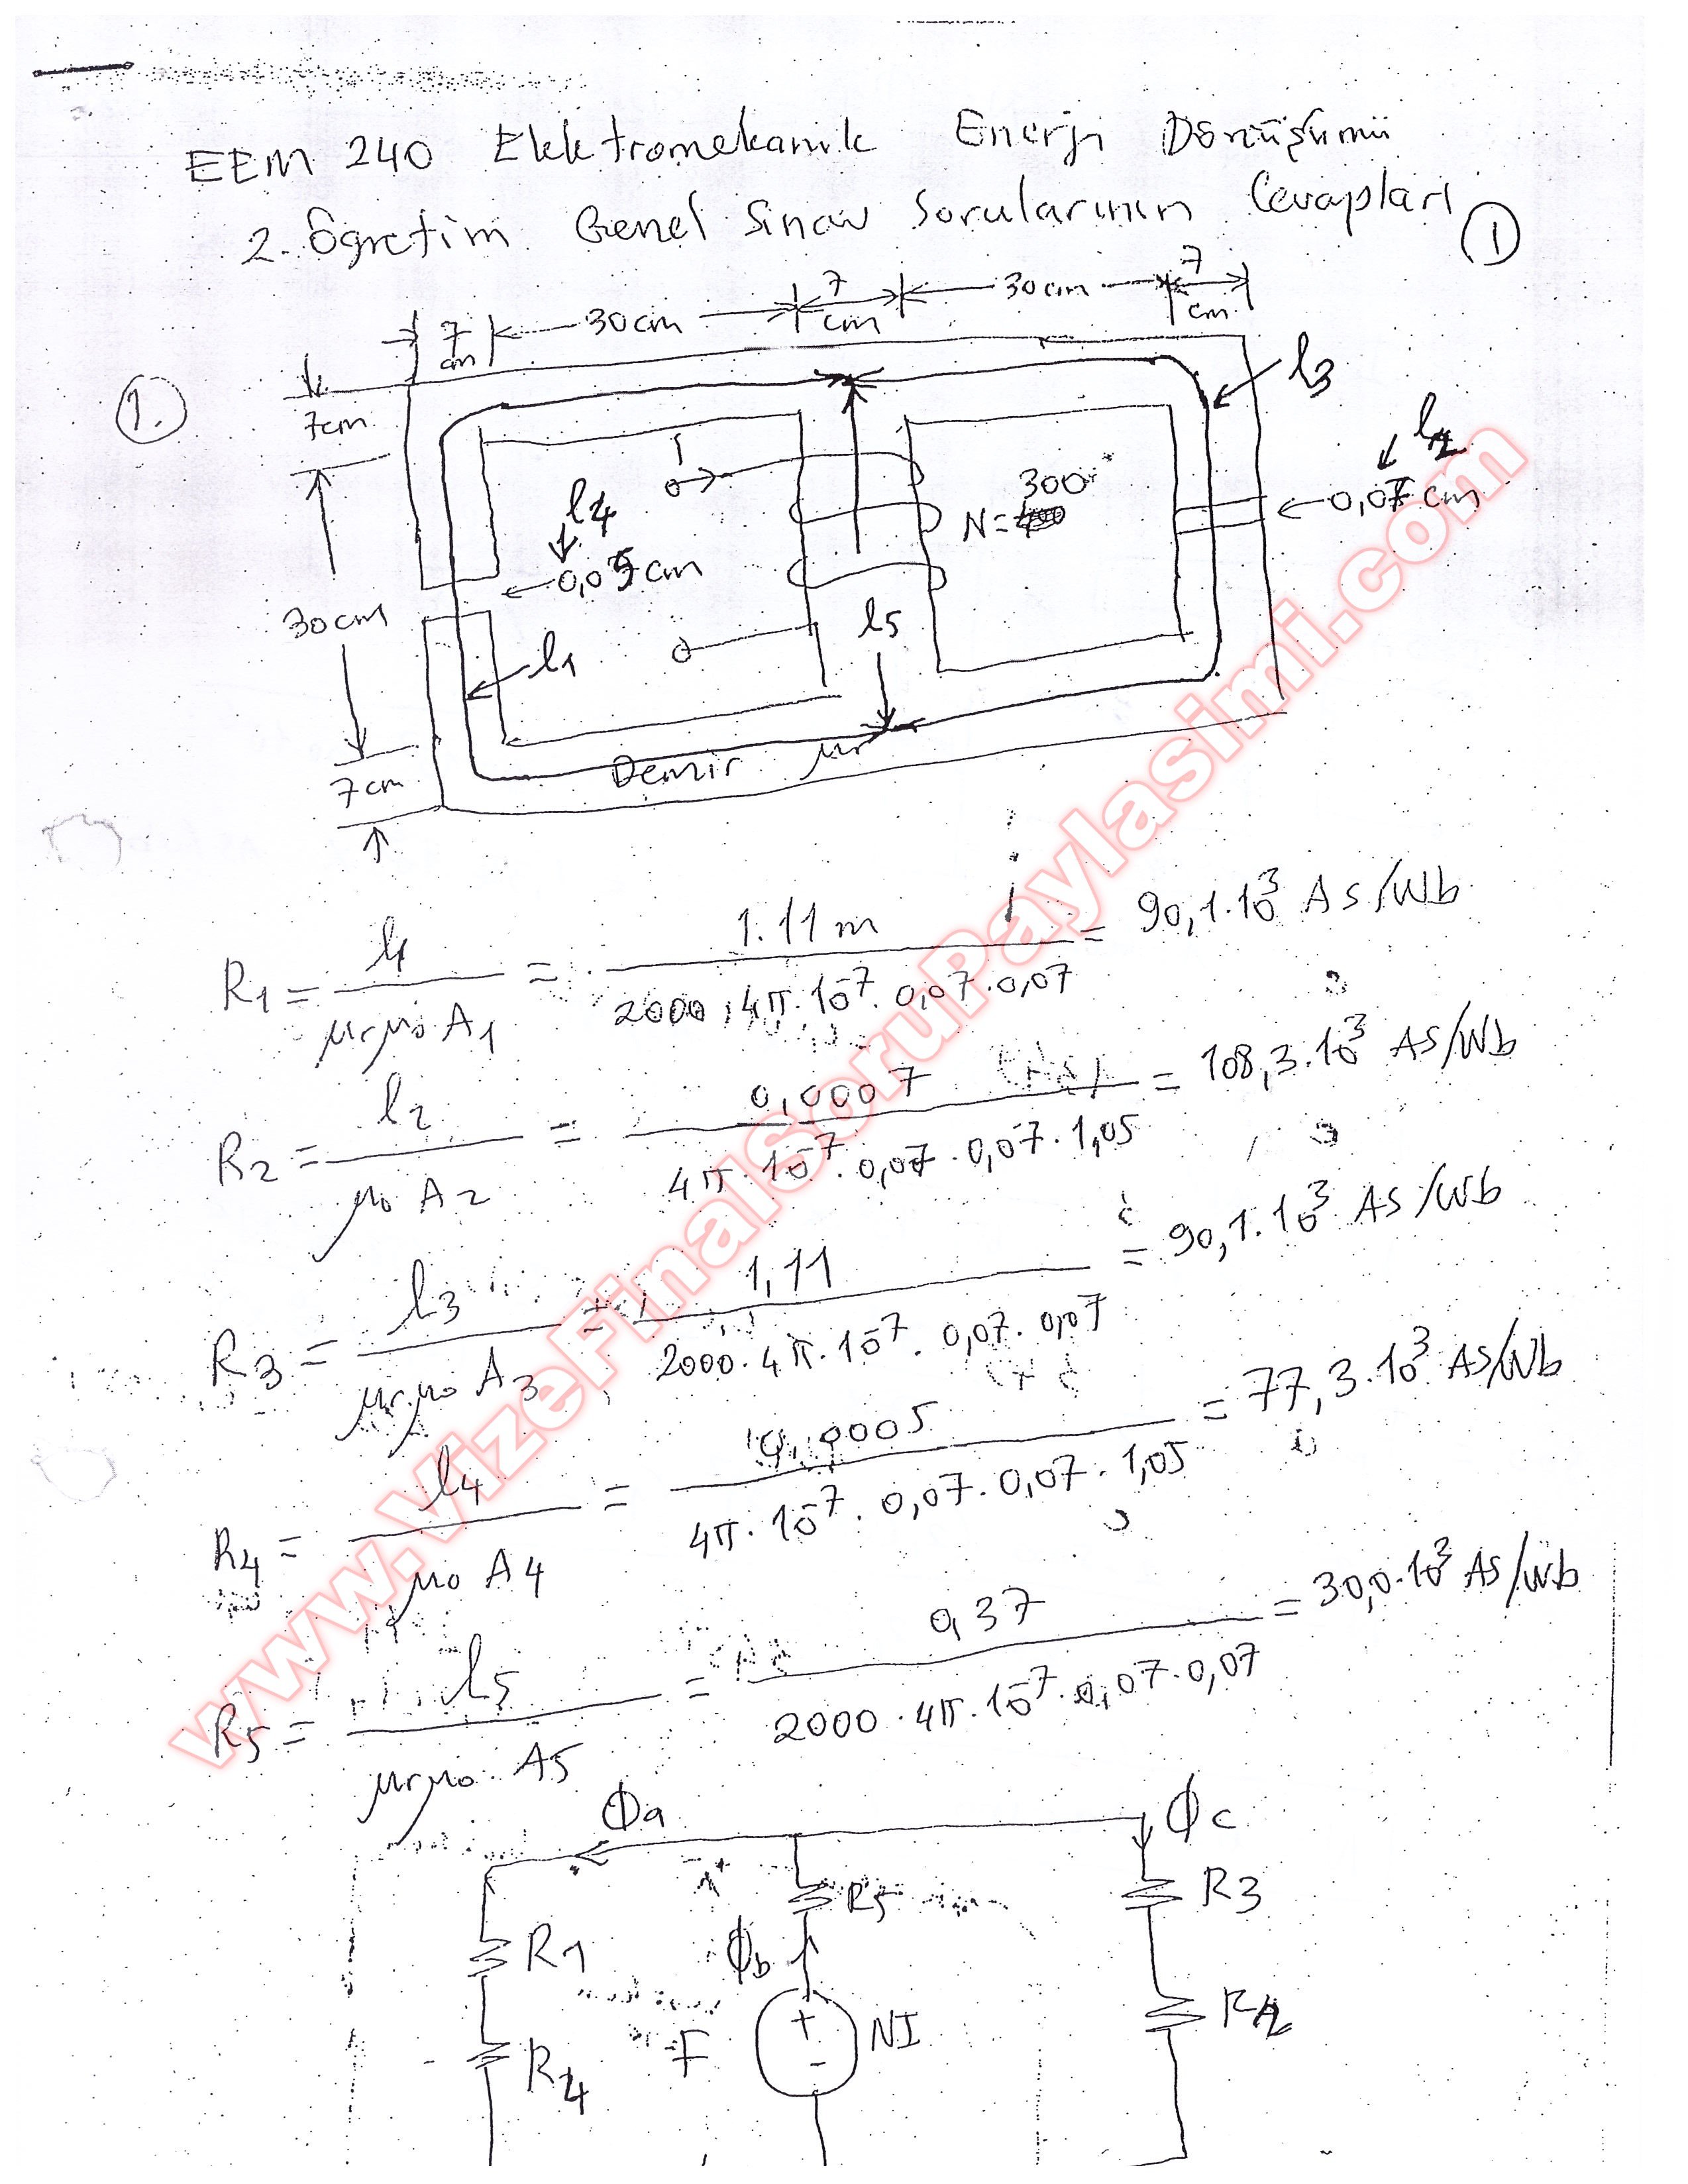 EEM 240 Elektromekanik Enerji Dönüşümü
2. Öğretim Genel Sınav Sorularının Cevapları ①
7 cm 30 cm 7 cm 30 cm 7 cm
①.
7cm
l3
l2
0,07 cm
I
300
N=
l4
0,05 cm
30cm
l5
l1
Demir μr
7cm
R1 = l1 / μrμ0 A1 = 1.11 m / 2000 . 4π . 10^-7 . 0,07 . 0,07 = 90,1 . 10^3 AS/Wb
R2 = l2 / μ0 A2 = 0,0007 / 4π . 10^-7 . 0,07 . 0,07 . 1,05 = 108,3 . 10^3 AS/Wb
R3 = l3 / μrμ0 A3 = 1,11 / 2000 . 4π . 10^-7 . 0,07 . 0,07 = 90,1 . 10^3 AS/Wb
R4 = l4 / μ0 A4 = 0,0005 / 4π . 10^-7 . 0,07 . 0,07 . 1,05 = 77,3 . 10^3 AS/Wb
R5 = l5 / μrμ0 . A5 = 0,37 / 2000 . 4π . 10^-7 . 0,07 . 0,07 = 30,0 . 10^3 AS/Wb
Φa Φc
R5 R3
R1 Φb
+
F NI R2
-
R4
www.VizeFinalSoruPaylasimi.com